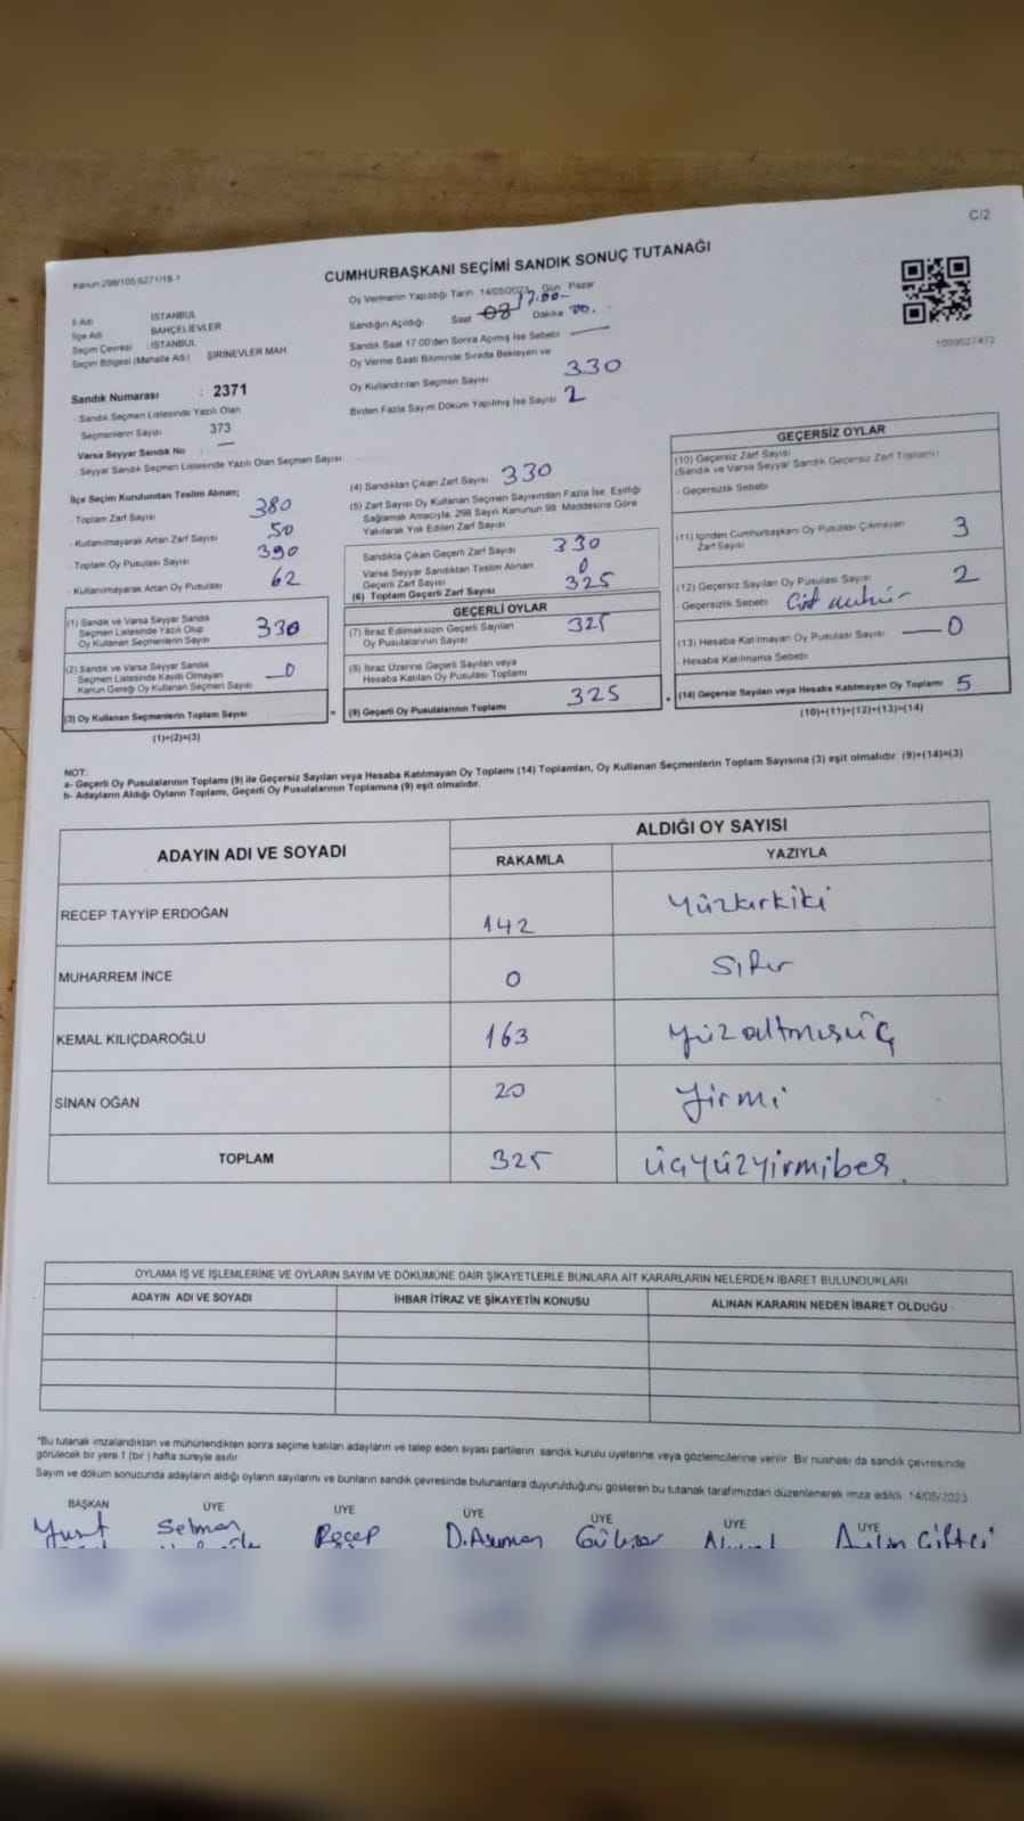 C/2
CUMHURBAŞKANI SEÇİMİ SANDIK SONUÇ TUTANAĞI
İl Adı İSTANBUL
İlçe Adı BAHÇELİEVLER
Seçim Çevresi : İSTANBUL
Seçim Bölgesi (Mahalle Adı) ŞİRİNEVLER MAH.
Sandık Numarası : 2371
Sandık Seçmen Listesinde Yazılı Olan
Seçmenlerin Sayısı 373
Varsa Seyyar Sandık No —
Seyyar Sandık Seçmen Listesinde Yazılı Olan Seçmen Sayısı
Oy Vermenin Yapıldığı Tarih 14/05/2023 Gün Pazar
Sandığın Açıldığı Saat 17.00 Dakika 00.
Sandık Saat 17.00'den Sonra Açılmış İse Sebebi —
Oy Verme Saati Bitiminde Sırada Bekleyen ve
Oy Kullandırılan Seçmen Sayısı 330
Birden Fazla Sayım Döküm Yapılmış İse Sayısı 2
İlçe Seçim Kurulundan Teslim Alınan;
Toplam Zarf Sayısı 380
Kullanılmayarak Artan Zarf Sayısı 50
Toplam Oy Pusulası Sayısı 390
Kullanılmayarak Artan Oy Pusulası 62
(1) Sandık ve Varsa Seyyar Sandık
Seçmen Listesinde Yazılı Olup
Oy Kullanan Seçmenlerin Sayısı 330
(2) Sandık ve Varsa Seyyar Sandık
Seçmen Listesinde Kayıtlı Olmayan
Kanun Gereği Oy Kullanan Seçmen Sayısı —0
(3) Oy Kullanan Seçmenlerin Toplam Sayısı
(1)+(2)=(3)
(4) Sandıktan Çıkan Zarf Sayısı 330
(5) Zarf Sayısı Oy Kullanan Seçmen Sayısından Fazla İse, Eşitliği
Sağlamak Amacıyla, 298 Sayılı Kanunun 98. Maddesine Göre
Yakılarak Yok Edilen Zarf Sayısı
Sandıkta Çıkan Geçerli Zarf Sayısı 330
Varsa Seyyar Sandıktan Teslim Alınan
Geçerli Zarf Sayısı 0
(6) Toplam Geçerli Zarf Sayısı 325
GEÇERLİ OYLAR
(7) İtiraz Edilmeksizin Geçerli Sayılan
Oy Pusulalarının Sayısı 325
(8) İtiraz Üzerine Geçerli Sayılan veya
Hesaba Katılan Oy Pusulası Toplamı
(9) Geçerli Oy Pusulalarının Toplamı 325
GEÇERSİZ OYLAR
(10) Geçersiz Zarf Sayısı
(Sandık ve Varsa Seyyar Sandık Geçersiz Zarf Toplamı)
Geçersizlik Sebebi
(11) İçinden Cumhurbaşkanı Oy Pusulası Çıkmayan
Zarf Sayısı 3
(12) Geçersiz Sayılan Oy Pusulası Sayısı 2
Geçersizlik Sebebi Çift mühür
(13) Hesaba Katılmayan Oy Pusulası Sayısı —0
Hesaba Katılmama Sebebi
(14) Geçersiz Sayılan veya Hesaba Katılmayan Oy Toplamı 5
(10)+(11)+(12)+(13)=(14)
NOT:
a- Geçerli Oy Pusulalarının Toplamı (9) ile Geçersiz Sayılan veya Hesaba Katılmayan Oy Toplamı (14) Toplamları, Oy Kullanan Seçmenlerin Toplam Sayısına (3) eşit olmalıdır. (9)+(14)=(3)
b- Adayların Aldığı Oyların Toplamı, Geçerli Oy Pusulalarının Toplamına (9) eşit olmalıdır.
ADAYIN ADI VE SOYADI ALDIĞI OY SAYISI
RAKAMLA YAZIYLA
RECEP TAYYİP ERDOĞAN 142 Yüzkırkiki
MUHARREM İNCE 0 Sıfır
KEMAL KILIÇDAROĞLU 163 Yüzaltmışüç
SİNAN OĞAN 20 Yirmi
TOPLAM 325 üçyüzyirmibeş.
OYLAMA İŞ VE İŞLEMLERİNE VE OYLARIN SAYIM VE DÖKÜMÜNE DAİR ŞİKAYETLERLE BUNLARA AİT KARARLARIN NELERDEN İBARET BULUNDUKLARI
ADAYIN ADI VE SOYADI İHBAR İTİRAZ VE ŞİKAYETİN KONUSU ALINAN KARARIN NEDEN İBARET OLDUĞU
*Bu tutanak imzalandıktan ve mühürlendikten sonra seçime katılan adayların ve talep eden siyasi partilerin sandık kurulu üyelerine veya gözlemcilerine verilir. Bir nüshası da sandık çevresinde
görülecek bir yere 1 (bir) hafta süreyle asılır.
Sayım ve döküm sonucunda adayların aldığı oyların sayılarını ve bunların sandık çevresinde bulunanlara duyurulduğunu gösteren bu tutanak tarafımızdan düzenlenerek imza edildi. 14/05/2023
BAŞKAN ÜYE ÜYE ÜYE ÜYE ÜYE ÜYE
Selman Recep D.Asuman Gülizar Çiftçi